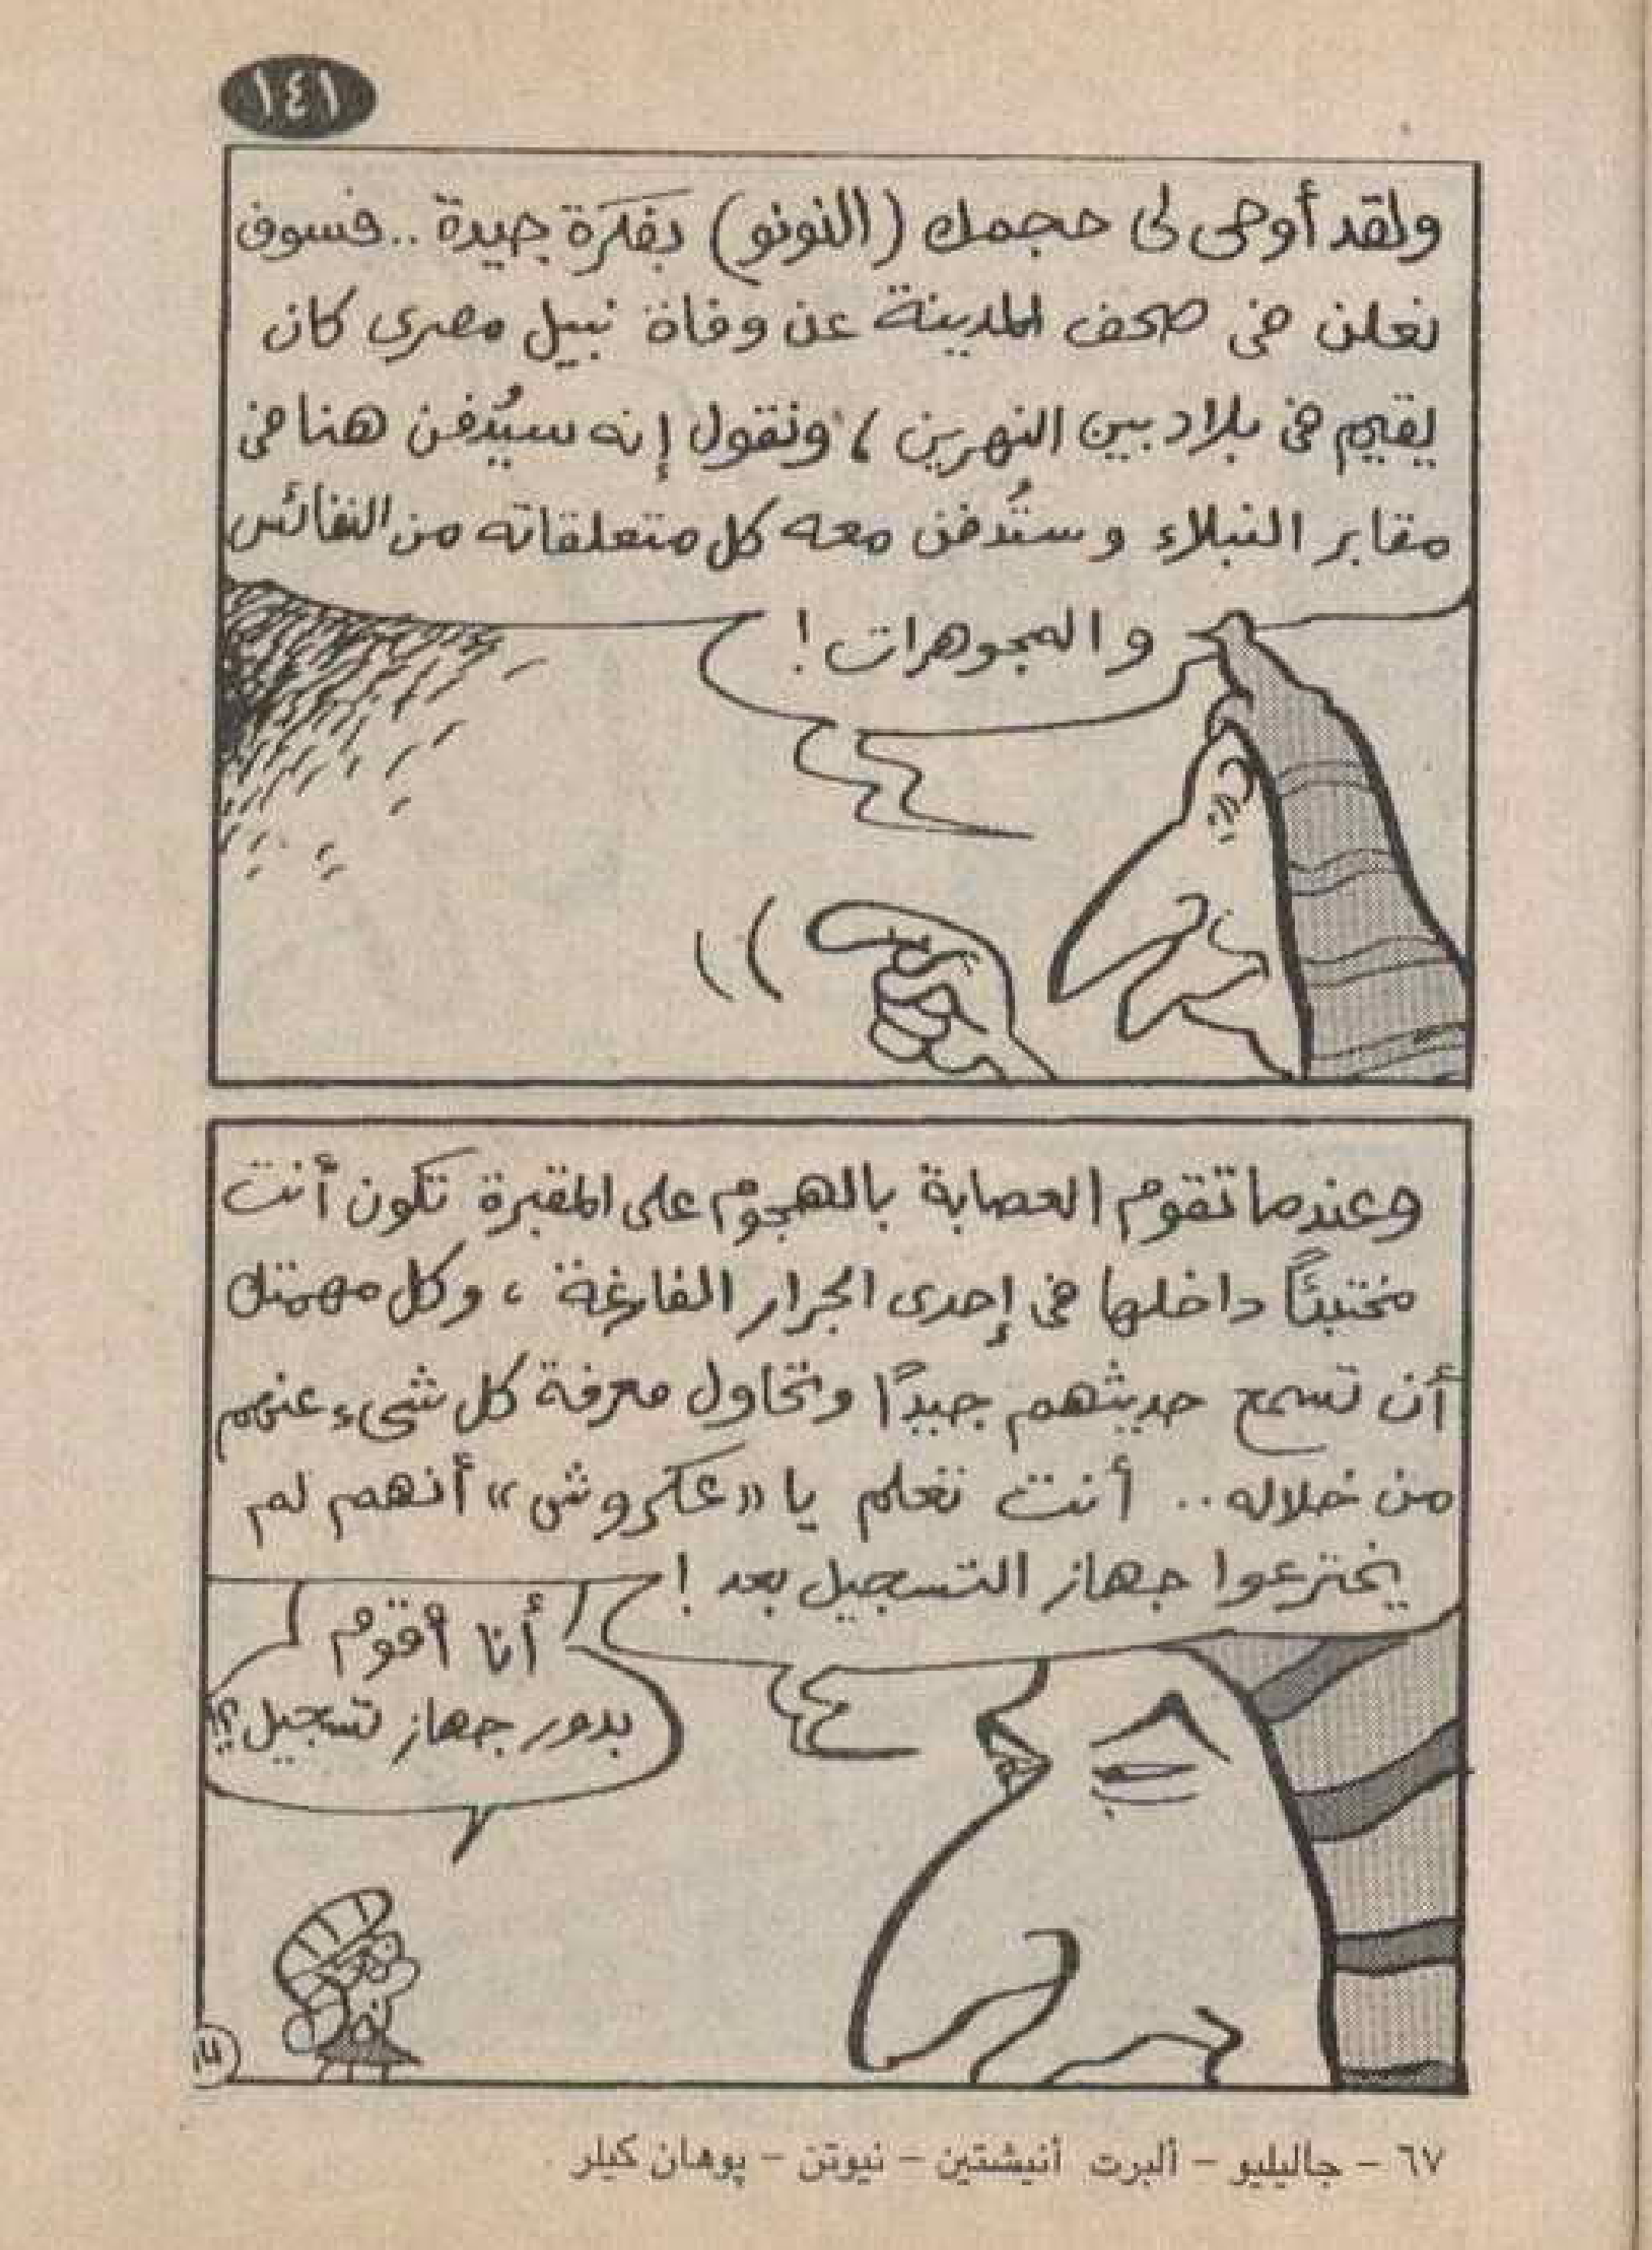 ١٤١
ولقد أوحى لى حجمك (النونو) بفكرة جيدة .. فسوف
نعلن فى صحف المدينة عن وفاة نبيل مصرى كان
يقيم فى بلاد بين النهرين ، ونقول إنه سيُدفن هنا فى
مقابر النبلاء وستُدفن معه كل متعلقاته من النفائس
والمجوهرات !
وعندما تقوم العصابة بالهجوم على المقبرة تكون أنت
مختبئًا داخلها فى إحدى الجرار الفارغة ، وكل مهمتك
أن تسمع حديثهم جيدًا وتحاول معرفة كل شىء عنهم
من خلاله .. أنت تعلم يا «عكروش» أنهم لم
يخترعوا جهاز التسجيل بعد !
أنا أقوم
بدور جهاز تسجيل ؟!
٦٧ - جاليليو - ألبرت أنيشتين - نيوتن - يوهان كيلر